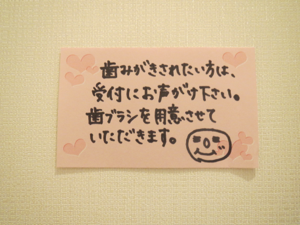 歯みがきされたい方は、
受付にお声がけ下さい。
歯ブラシを用意させて
いただきます。